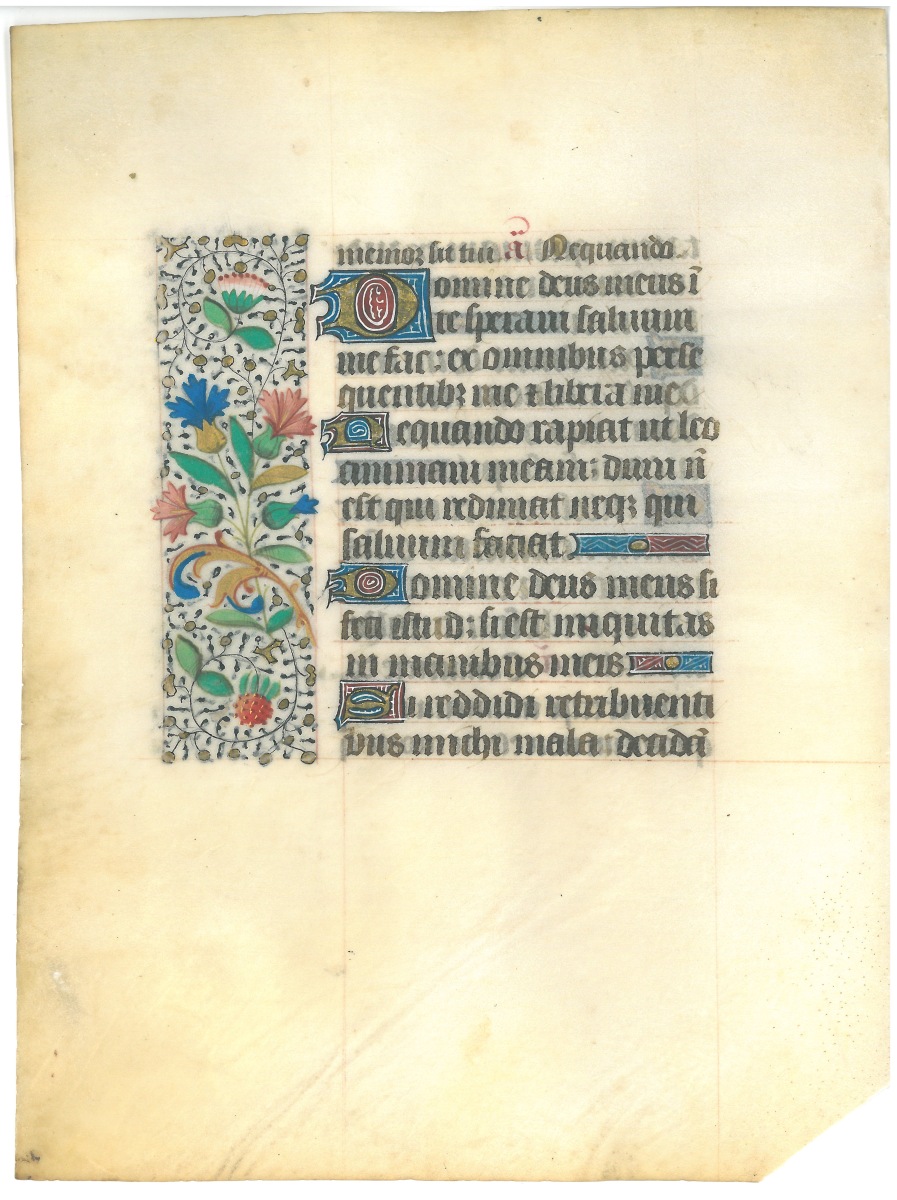 memor sit tui a͞ Nequando
Domine deus meus ī
te speraui saluum
me fac: ex omnibus perse
quentibꝫ me ⁊ libera me
Nequando rapiat ut leo
animam meam: dum nō
est qui redimat neqꝫ qui
saluum faciat
Domine deus meus si
feci istud: si est iniquitas
in manibus meis
Si reddidi retribuenti
bus michi mala decidā